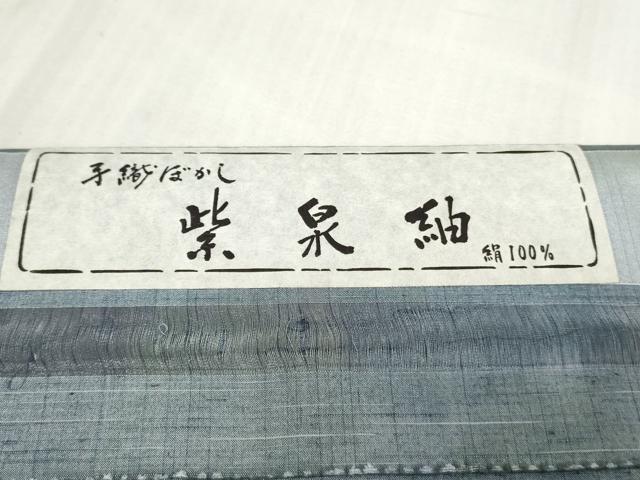 手織ぼかし
紫泉紬
絹100%